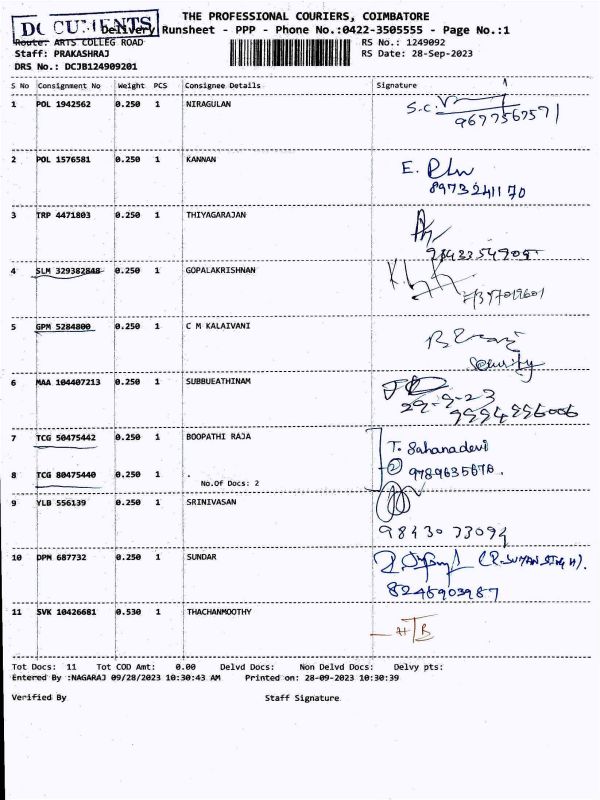 THE PROFESSIONAL COURIERS, COIMBATORE
DOCUMENTS Delivery Runsheet - PPP - Phone No.:0422-3505555 - Page No.:1
Route: ARTS COLLEG ROAD RS No.: 1249092
Staff: PRAKASHRAJ RS Date: 28-Sep-2023
DRS No.: DCJB124909201
S No Consignment No Weight PCS Consignee Details Signature
1 POL 1942562 0.250 1 NIRAGULAN
9677567571
2 POL 1576581 0.250 1 KANNAN
8973241170
3 TRP 4471803 0.250 1 THIYAGARAJAN
4 SLM 329382848 0.250 1 GOPALAKRISHNAN
5 GPM 5284800 0.250 1 C M KALAIVANI
Security
6 MAA 104407213 0.250 1 SUBBUEATHINAM
29-9-23
9994896006
7 TCG 50475442 0.250 1 BOOPATHI RAJA
T. Sahanadevi
8 TCG 80475440 0.250 1 .
No.Of Docs: 2
② 9789635676.
9 YLB 556139 0.250 1 SRINIVASAN
98430 73094
10 DPM 687732 0.250 1 SUNDAR
(R.SUMAN SINGH).
8248903987
11 SVK 10426681 0.530 1 THACHANMOOTHY
Tot Docs: 11 Tot COD Amt: 0.00 Delvd Docs: Non Delvd Docs: Delvy pts:
Entered By :NAGARAJ 09/28/2023 10:30:43 AM Printed on: 28-09-2023 10:30:39
Verified By Staff Signature